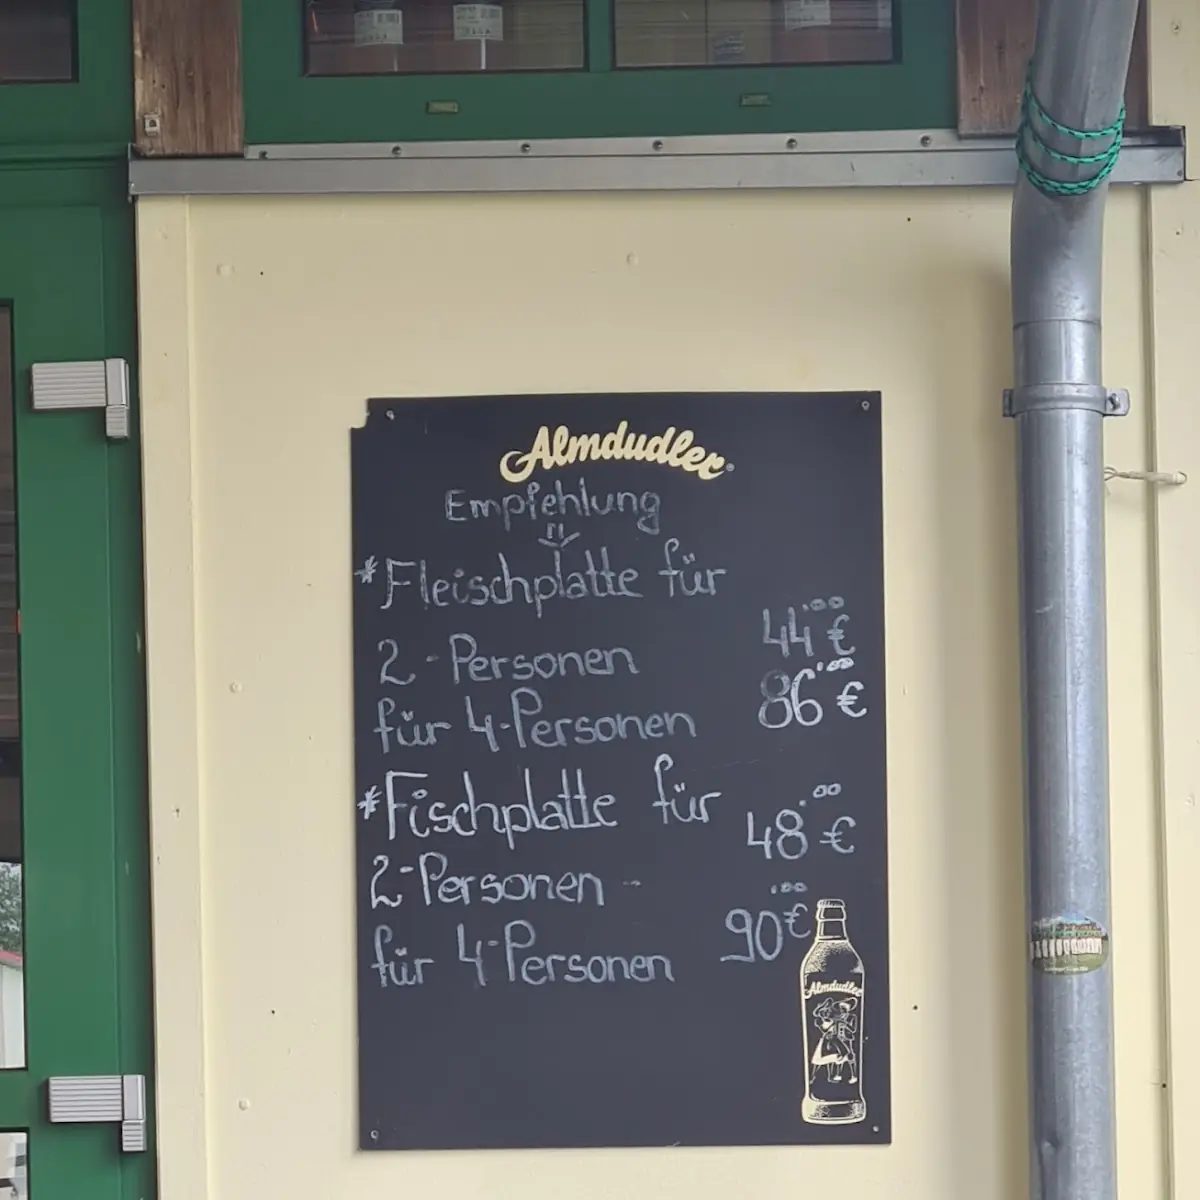 Almdudler®
Empfehlung
*Fleischplatte für
2-Personen 44.00 €
für 4-Personen 86.00 €
*Fischplatte für
2-Personen - 48.00 €
für 4-Personen 90.00 €
Almdudler